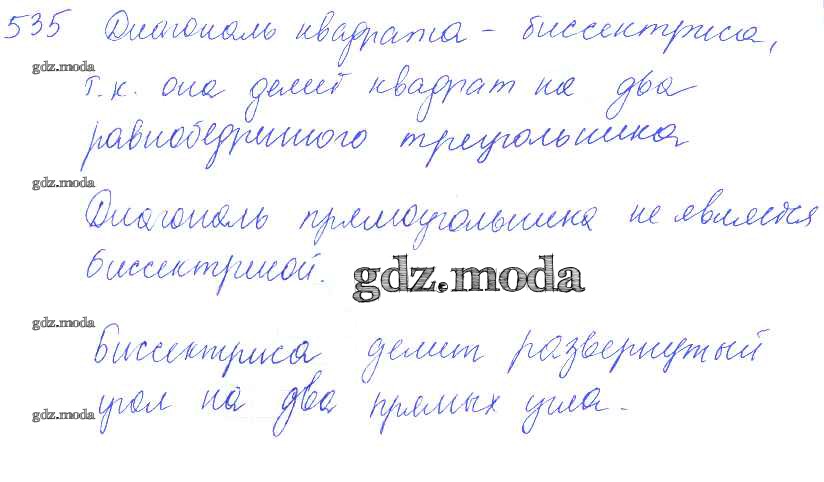 535 Диагональ квадрата - биссектриса,
gdz.moda
т.к. она делит квадрат на два
равнобедринного треугольника
gdz.moda
Диагональ прямоугольника не является
биссектрисой.
gdz.moda
gdz.moda
Биссектриса делит развернутый
угол на два прямых угла.
gdz.moda